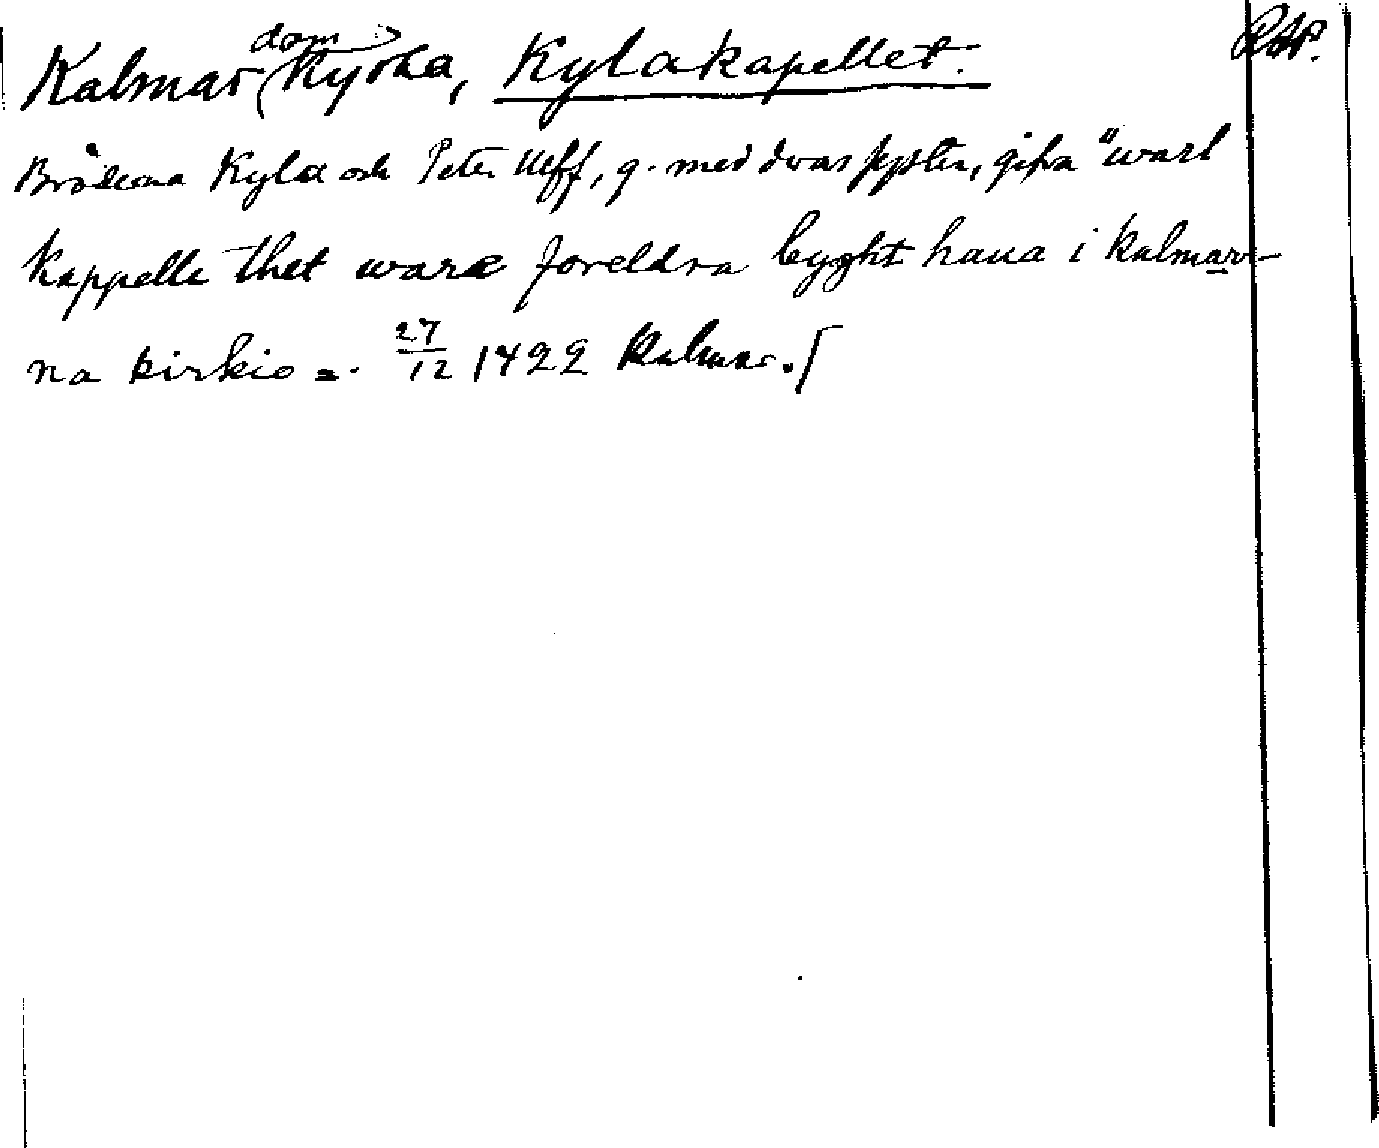 Kalmar (dom) kyrka, Kylakapellet. RAP.
Bröderna Kyle och Peter Ulff, g. med dwas syster, gifva "wart
kappelle thet ware foreldra byght haua i kalmar-
na kirkio =. 27/12 1422 Kalmar.